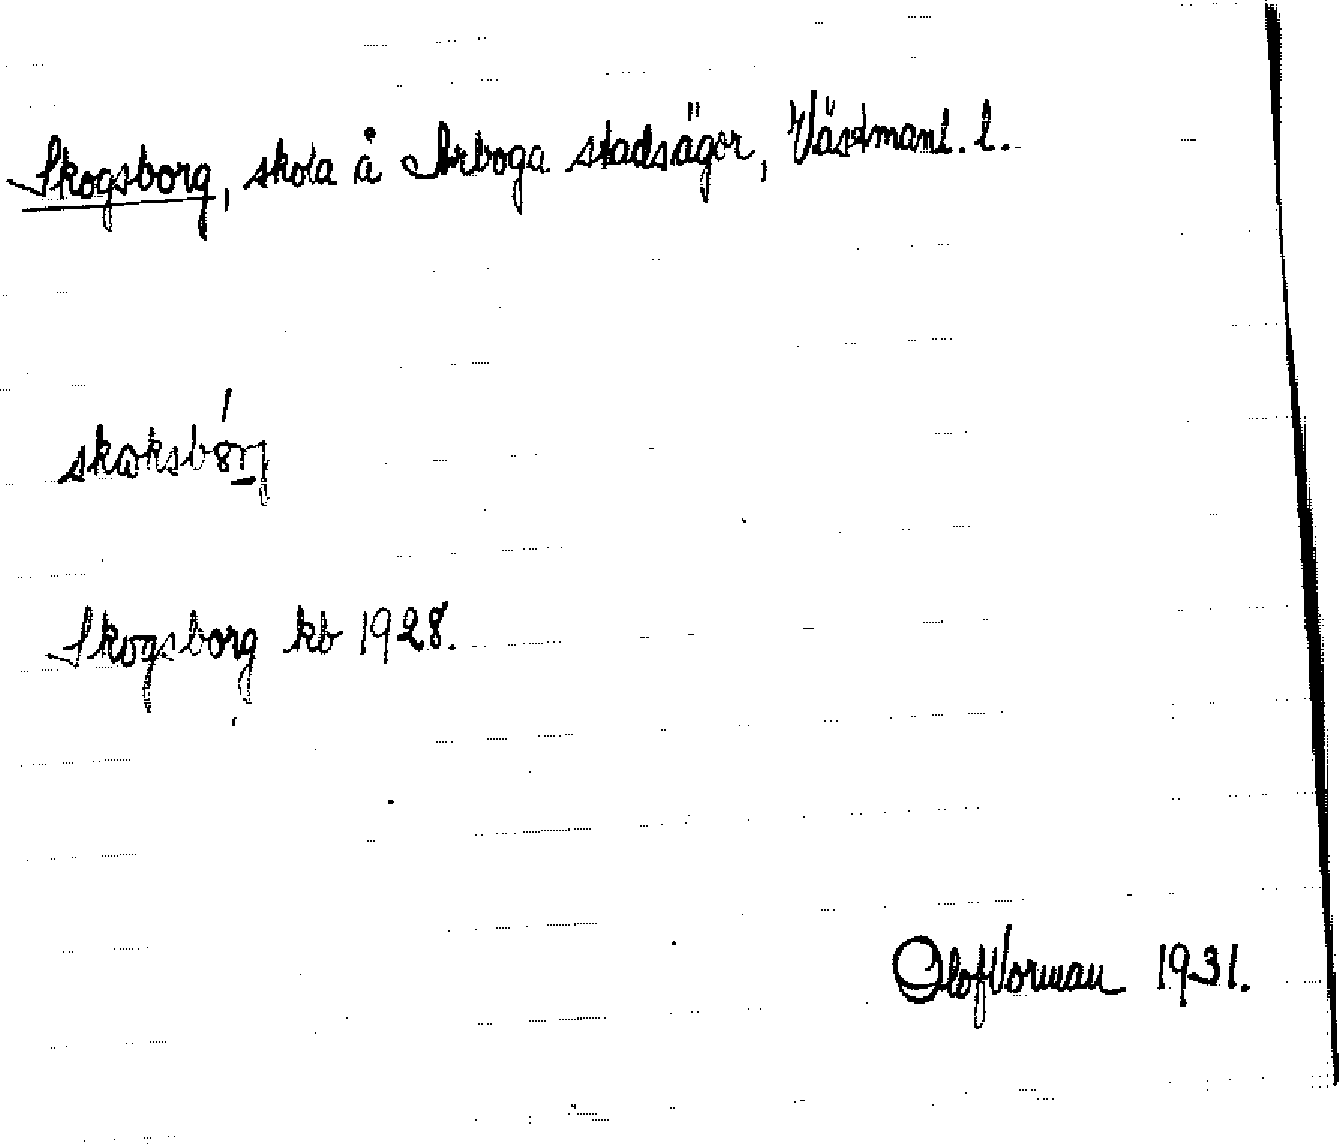 Skogsborg, skola å Arboga stadsägor, Västmanl. l.
skoksbórj
Skogsborg kb 1928.
Olof Vorman 1931.